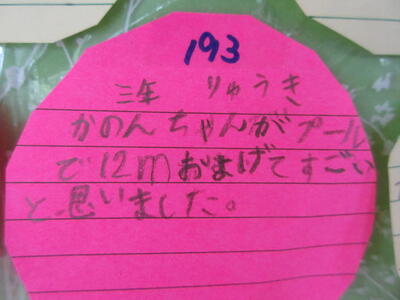 193
三年 りゅうき
かのんちゃんがプール
で12mおよげてすごい
と思いました。